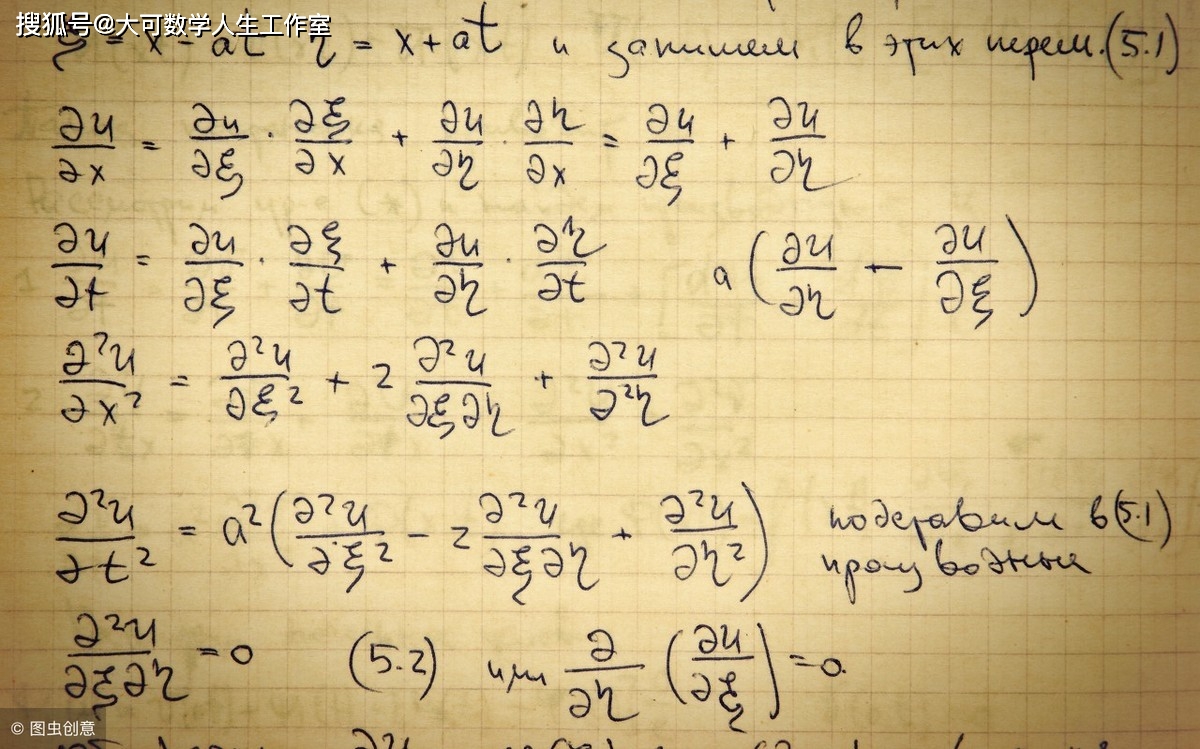 搜狐号@大可数学人生工作室
ξ = x - at η = x + at и запишем в этих перем. (5.1)
∂u/∂x = ∂u/∂ξ · ∂ξ/∂x + ∂u/∂η · ∂η/∂x = ∂u/∂ξ + ∂u/∂η
∂u/∂t = ∂u/∂ξ · ∂ξ/∂t + ∂u/∂η · ∂η/∂t a(∂u/∂η - ∂u/∂ξ)
∂²u/∂x² = ∂²u/∂ξ² + 2 ∂²u/∂ξ∂η + ∂²u/∂²η
∂²u/∂t² = a²(∂²u/∂ξ² - 2 ∂²u/∂ξ∂η + ∂²u/∂η²) подставим в (5.1)
производные
∂²u/∂ξ∂η = 0 (5.2) или ∂/∂η (∂u/∂ξ) = 0.
© 图虫创意